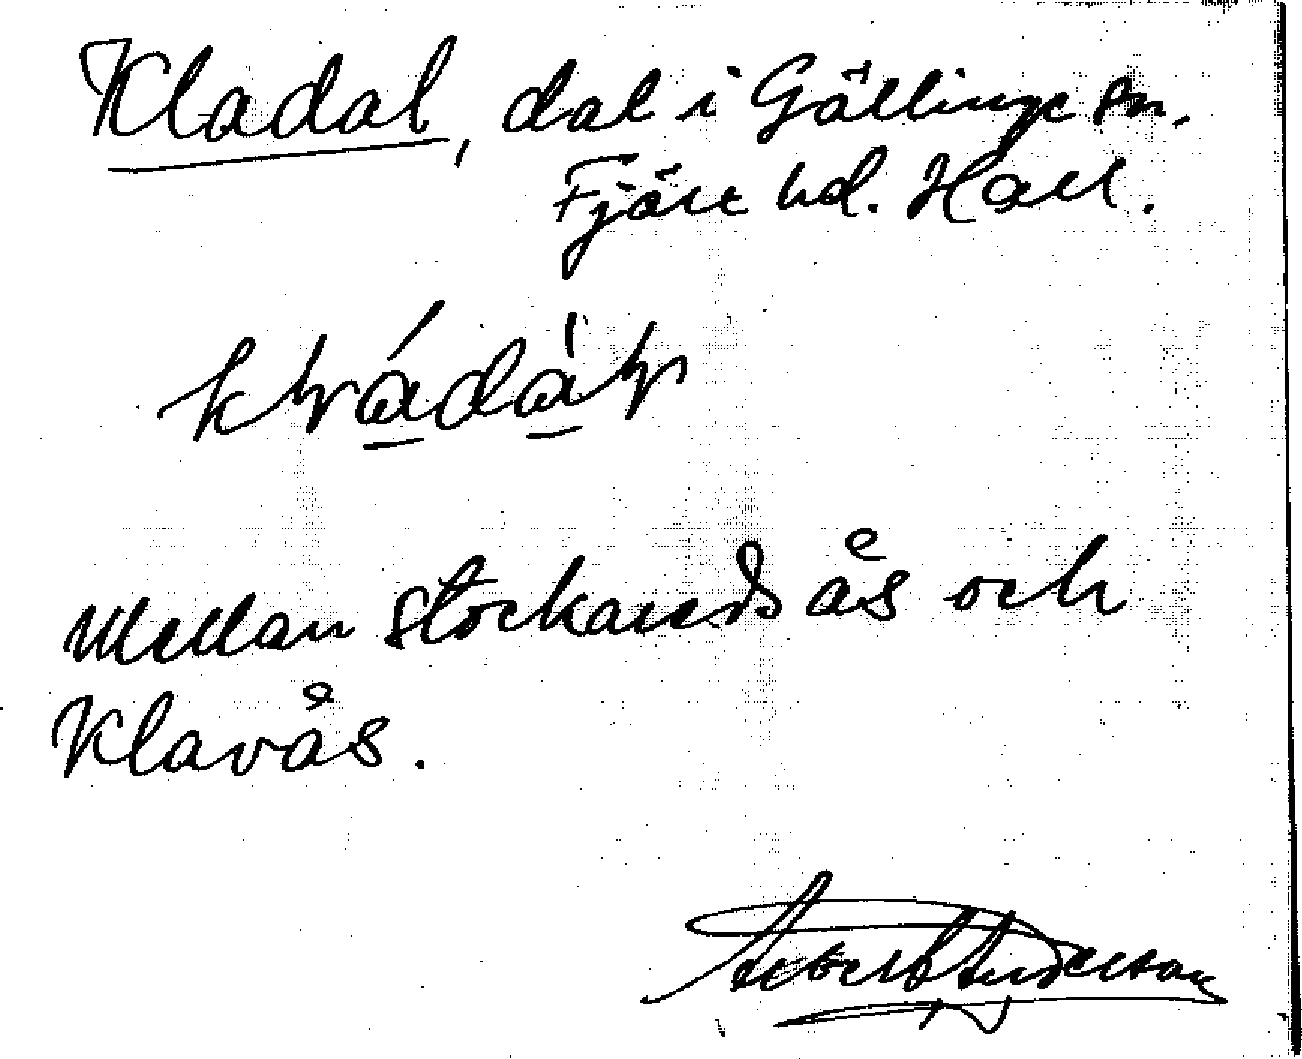 Kladal, dal i Gällinge sn.
Fjäre hd. Hall.
Mellan Stockareds ås och
Klavås.